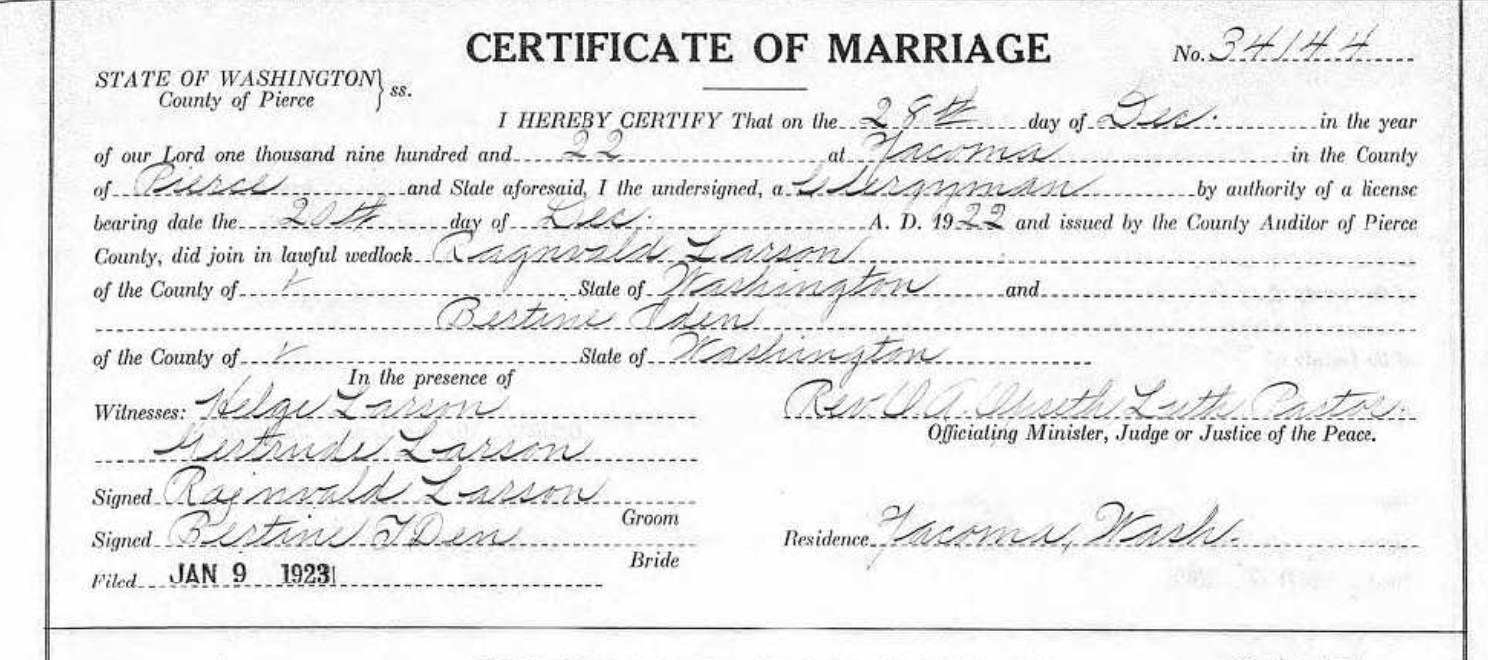 CERTIFICATE OF MARRIAGE
No. 34144
STATE OF WASHINGTON } ss.
County of Pierce
I HEREBY CERTIFY That on the 28th day of Dec. in the year
of our Lord one thousand nine hundred and 22 at Tacoma in the County
of Pierce and State aforesaid, I the undersigned, a Clergyman by authority of a license
bearing date the 20th day of Dec. A. D. 1922 and issued by the County Auditor of Pierce
County, did join in lawful wedlock Ragnvald Larson
of the County of State of Washington and
Bertine Iden
of the County of State of Washington
In the presence of
Witnesses: Helge Larson
Rev. O. A. Luth. Pastor.
Officiating Minister, Judge or Justice of the Peace.
Gertrude Larson
Signed Ragnvald Larson
Groom
Signed Bertine IDen
Bride
Residence Tacoma, Wash.
Filed JAN 9 1923